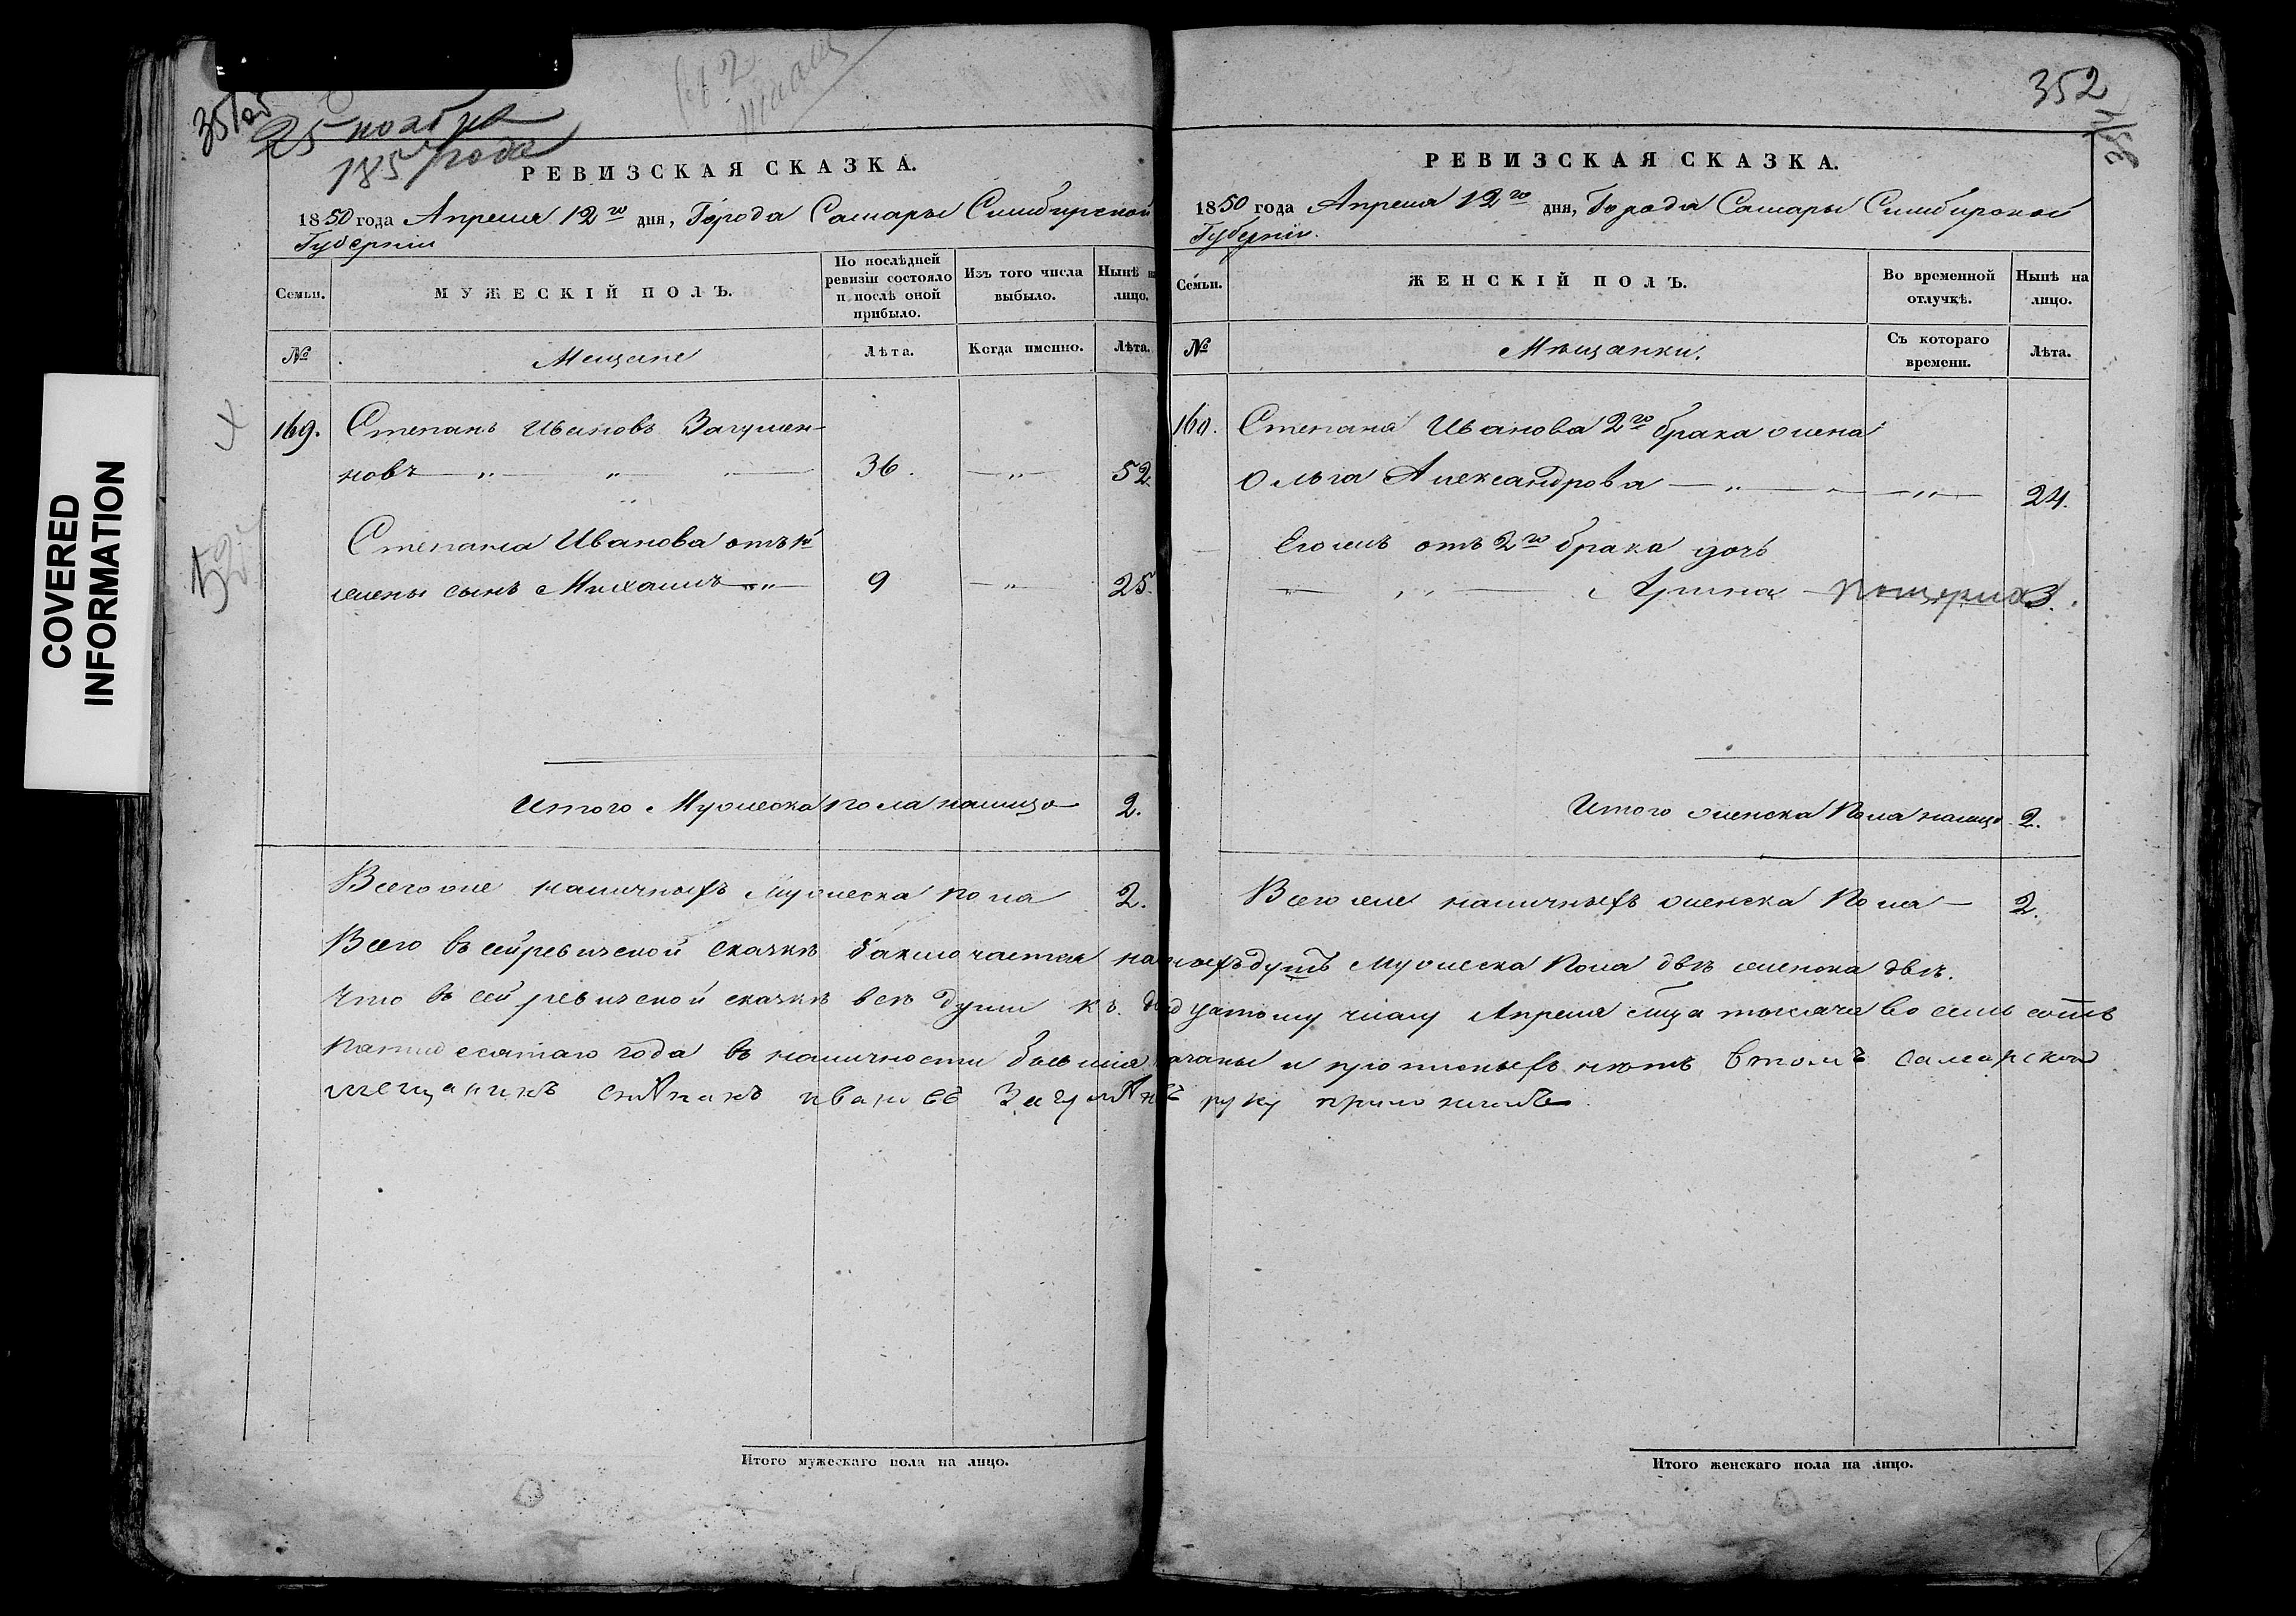 352
25 ноября
185 года
РЕВИЗСКАЯ СКАЗКА.
1850 года Апреля 12го дня, Города Самары Симбирской
Губерніи
Семьи.
МУЖЕСКІЙ ПОЛЪ.
По послѣдней ревизіи состояло и послѣ оной прибыло.
Изъ того числа выбыло.
Нынѣ на лицо.
№
Мещане
Лѣта.
Когда именно.
Лѣта.
169. Степанъ Ивановъ Загумен-
новъ 36. 52
Степана Иванова отъ 1й
жены сынъ Михаилъ 9 25.
Итого Мужеска пола налицо 2.
Всего же наличныхъ мужеска пола 2.
РЕВИЗСКАЯ СКАЗКА.
1850 года Апреля 12го дня, Города Самары Симбирской
Губерніи.
Семьи.
ЖЕНСКІЙ ПОЛЪ.
Во временной отлучкѣ.
Нынѣ на лицо.
№
Мѣщанки.
Съ котораго времени.
Лѣта.
160. Степана Иванова 2го брака жена
Ольга Александрова 24.
Его же отъ 2го брака дочь
Арина 3.
Итого женска Пола налицо 2.
Всего же наличныхъ женска Пола 2.
Всего въ сей ревизской сказкѣ заключается наличныхъ душъ Мужеска Пола двѣ женска двѣ.
Что въ сей ревизской сказкѣ всѣ души къ двадцатому числу Апреля мца тысяча восемь сотъ
пятидесятаго года въ наличности бывшія показаны и прописныхъ нѣтъ втомъ самарской
мещанинъ степанъ ивановъ руку приложилъ
Итого мужескаго пола на лицо.
Итого женскаго пола на лицо.
COVERED
INFORMATION